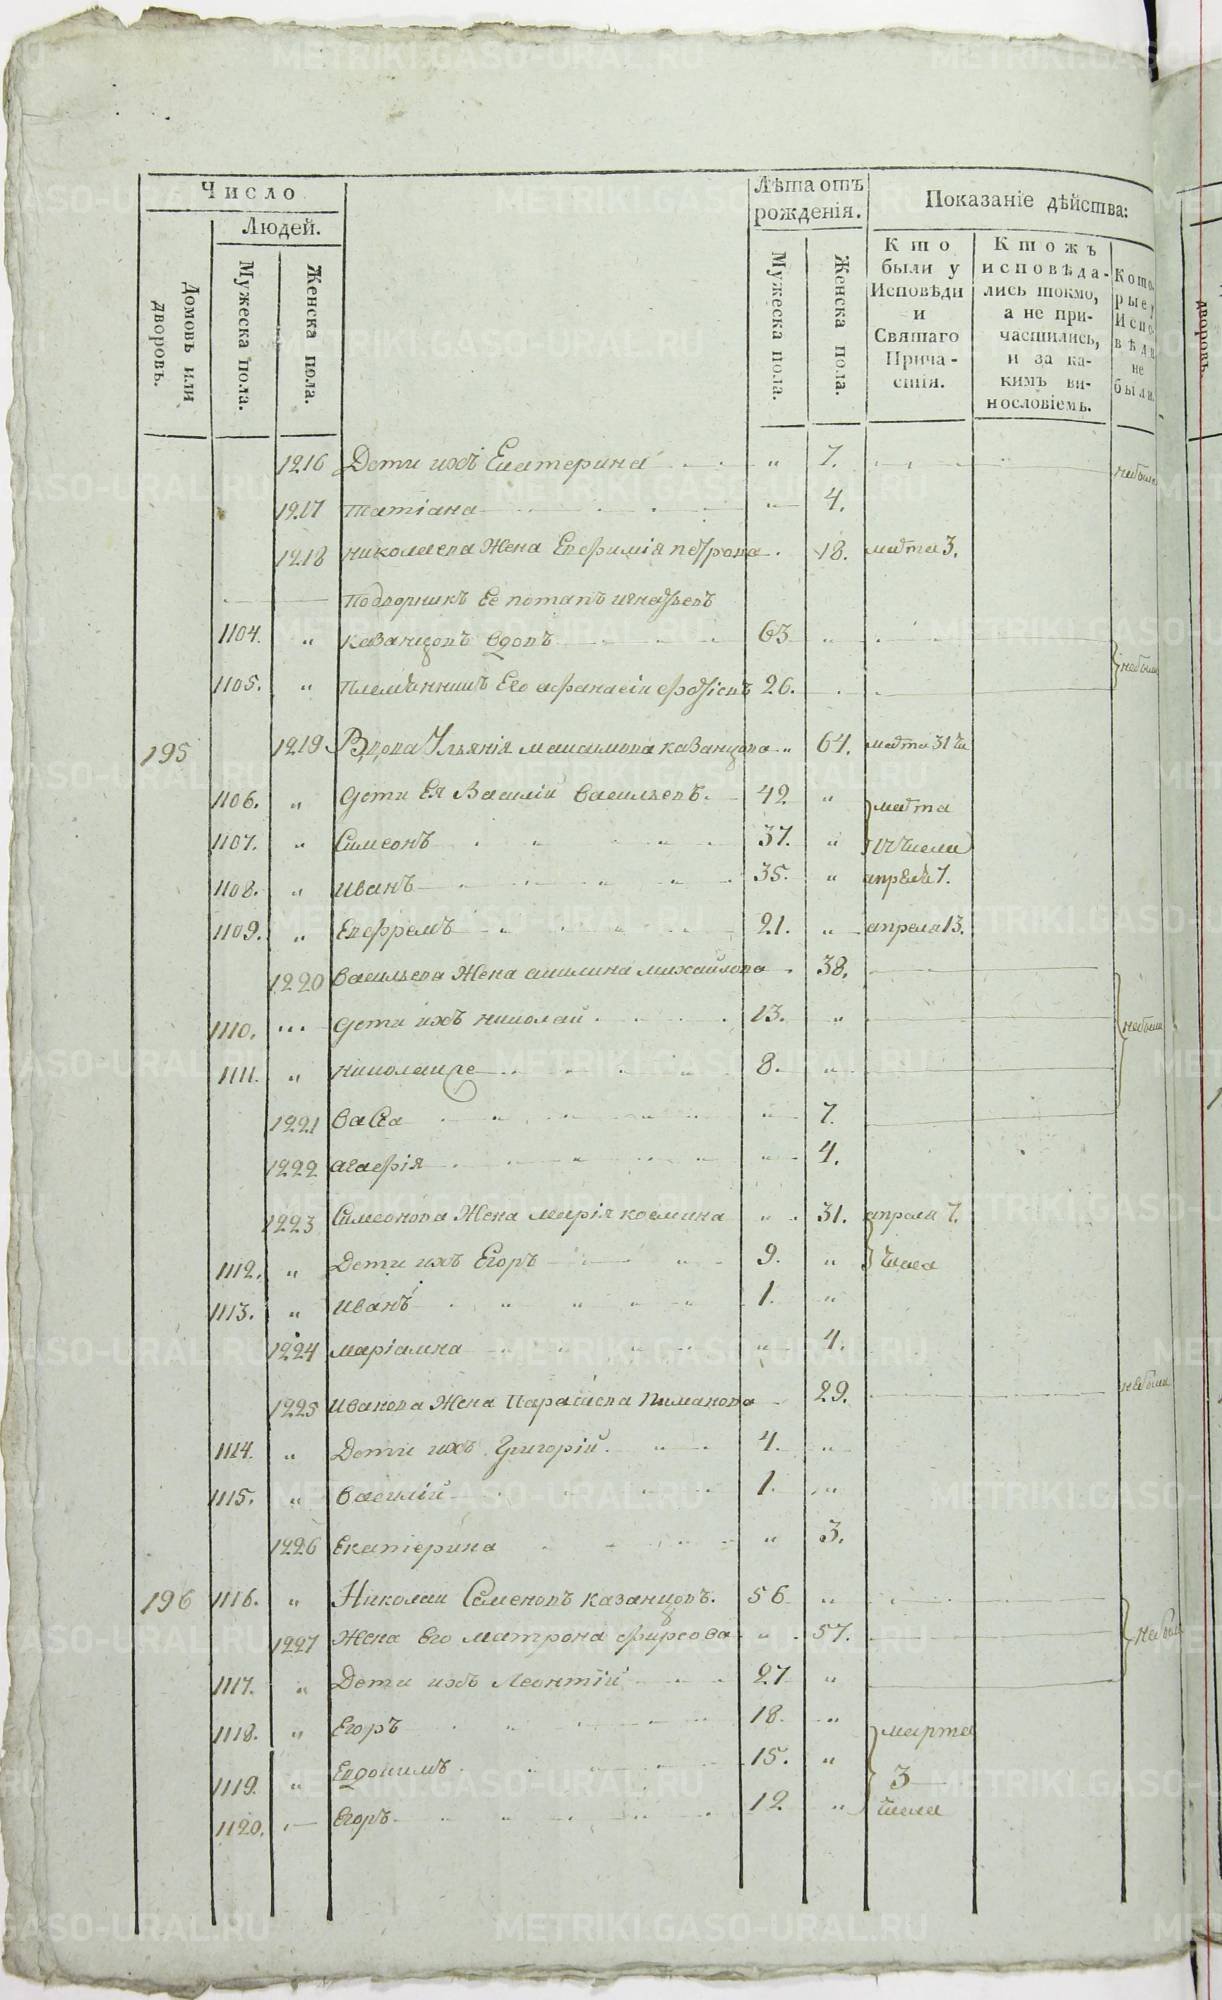 Число
Людей.
Домовъ или дворовъ.
Мужеска пола.
Женска пола.
Лѣта отъ рожденія.
Мужеска пола.
Женска пола.
Показаніе дѣйства:
Кто были у Исповѣди и Святаго Причастія.
Ктожъ исповѣдались токмо, а не причастились, и за какимъ винословіемъ.
Которые у Исповѣди не были.
1216 Дети ихъ Екатерина " 7. небыли
1217 татіана " 4.
1218 николаева Жена Евфимія петрова 18. марта 3.
Подворникъ Ее потапъ игнатьевъ
1104. " казанцовъ вдовъ 63 "
1105. " племянникъ Его афанасіи 26. небыли
195 1219 Вдова Ульянія казанцова " 64. марта 31 чи
1106. " Дети Ея Василій васильевъ. 42 " марта
1107. " Симеонъ 37. " числа
1108. " иванъ 35. " апреля 7.
1109. " Евфремъ 21. " апреля 13.
1220 васильева Жена акилина михайлова 38.
1110. Дети ихъ николай 13. " небыли
1111. " николай же 8. "
1221 васса " 7.
1222 агафія " 4.
1223 Симеонова Жена марія космина " 31. апреля 7.
1112. " Дети ихъ Егоръ 9. " числа
1113. " иванъ 1. "
1224 маріамна " 4.
1225 иванова Жена Параскева пиманова 29. небыли
1114. " Дети ихъ Григорій 4. "
1115. " василій 1. "
1226 Екатерина " 3.
196 1116. " Николаи Семеновъ казанцовъ. 56 "
1227 Жена Его матрона фирсова " 57. небыли
1117. " Дети ихъ Леонтій 27 "
1118. " Егоръ 18. " марта
1119. " Евдокимъ 15. " 3
1120. Егоръ 12 " числа
дворовъ.
METRIKI.GASO-URAL.RU